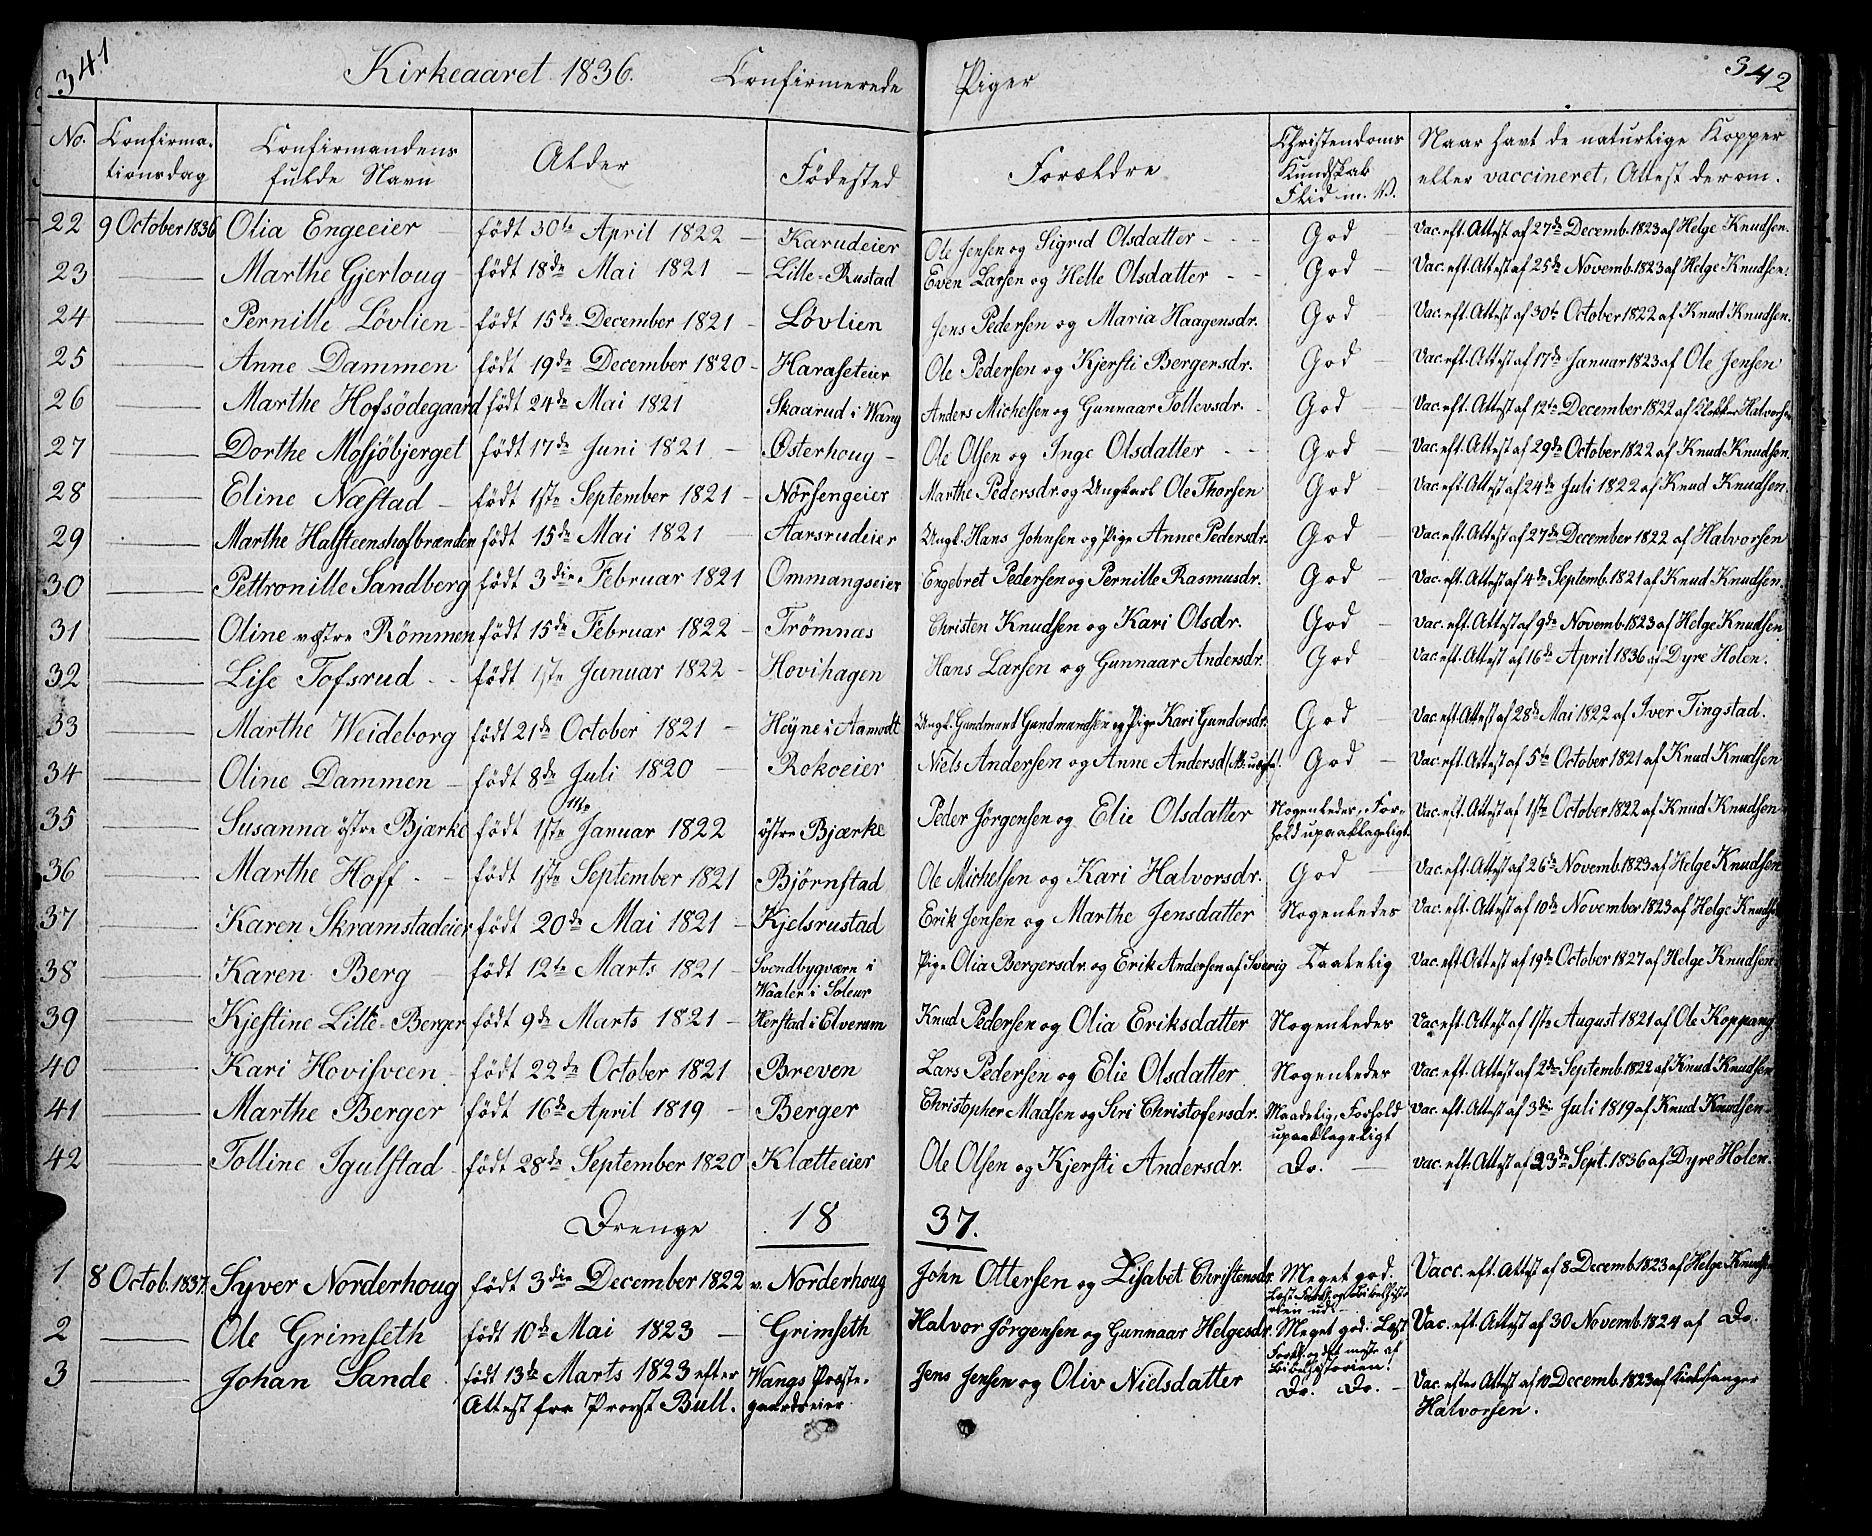 341
Kirkeaaret 1836. Confirmerede Piger
342
No. Confirma- Confirmandens Alder Fødested Forældre Christendoms Naar havt de naturlige Kopper
tionsdag fulde Navn Kundskab eller vaccineret, Attest derom.
Flid m. V.
22 9 October 1836 Olia Engeeier — født 30te April 1822 — Karudeier Ole Jensen og Sigrid Olsdatter - - - God — Vac. eft. Attest af 27de Decemb. 1823 af Helge Knudsen.
23 — Marthe Gjerloug — født 18de Mai 1821 — Lille-Rustad Even Larsen og Helle Olsdatter - - God — Vac. eft. Attest af 25de Novemb. 1823 af Helge Knudsen.
24 — Pernille Løvlien - født 15de December 1821 - Løvlien Jens Pedersen og Maria Haagensdr. God — Vac. eft. Attest af 30te October 1822 af Knud Knudsen.
25 — Anne Dammen født 19de December 1820 - Haraseteier Ole Pedersen og Kjersti Bergersdr. God — Vac. eft. Attest af 17de Januar 1823 af Ole Jensen
26 — Marthe Hofsödegaard født 24de Mai 1821 Skaarud i Wang Anders Michelsen og Gunnaar Tollevsdr. God — Vac. eft. Attest af 12te December 1822 af Klokker Halvorsen
27 — Dorthe Mosjöbjerget født 17de Juni 1821 - Østerhoug - Ole Olsen og Inge Olsdatter - - God — Vac. eft. Attest af 29de October 1822 af Knud Knudsen.
28 — Eline Næstad - født 1ste September 1821 - Nörsengeier Marthe Pedersdr. og Ungkarl Ole Thorsen God — Vac. eft. Attest af 24de Juli 1822 af Knud Knudsen.
29 — Marthe Halsteenshofbrænden født 15de Mai 1821 — Aarsrudeier Ungk. Hans Johnsen og Pige Anne Pedersdr. God — Vac. eft. Attest af 27de December 1822 af Halvorsen
30 — Pettronille Sandberg født 3die Februar 1821 Ommangseier Engebret Pedersen og Pernille Rasmusdr. God — Vac. eft. Attest af 4de Septemb. 1821 af Knud Knudsen.
31 — Oline vestre Römmen født 15de Februar 1822 - Trömnæs Christen Knudsen og Kari Olsdr. God — Vac. eft. Attest af 9de Novemb. 1823 af Helge Knudsen
32 — Lise Tofsrud - - født 1ste Januar 1822 - Hovihagen Hans Larsen og Gunnaar Andersdr. God Vac. eft. Attest af 16de April 1836 af Dyre Holen.
33 — Marthe Weideborg født 21de October 1821 - Höyne i Aamodt Ungk. Gundmund Gundmundsen og Pige Kari Gundersdr. God Vac. eft. Attest af 28de Mai 1822 af Iver Tingstad.
34 — Oline Dammen - født 8de Juli 1820 — Rokoeier Niels Andersen og Anne Andersd God — Vac. eft. Attest af 5te October 1821 af Knud Knudsen
35 — Susanna östre Bjærke født 1ste Januar 1822 östre Bjærke Peder Jörgensen og Elie Olsdatter Nogenledes. For- Vac. eft. Attest af 1ste October 1822 af Knud Knudsen
hold upaaklageligt
36 — Marthe Hoff - - født 1ste September 1821 Björnstad Ole Michelsen og Kari Halvorsdr. God — Vac. eft. Attest af 26de Novemb. 1823 af Helge Knudsen
37 — Karen Skramstadeier født 20de Mai 1821 - Kjelsrustad Erik Jensen og Marthe Jensdatter Nogenledes Vac. eft. Attest af 10de November 1823 af Helge Knudsen
38 — Karen Berg — født 12te Marts 1821 - Svendbygværn i Pige Olia Bergersdr. og Erik Andersen af Sverig Taalelig Vac. eft. Attest af 19de October 1827 af Helge Knudsen
Waaler i Soleur
39 — Kjestine Lille-Berger født 9de Marts 1821 - Herstad i Elverum Knud Pedersen og Olia Eriksdatter Nogenledes Vac. eft. Attest af 1ste August 1821 af Ole Koppang
40 — Kari Hovisveen - født 22de October 1821 Breven Lars Pedersen og Elie Olsdatter Nogenledes Vac. eft. Attest af 2de Septemb. 1822 af Knud Knudsen
41 — Marthe Berger født 16de April 1819 - Berger Christopher Madsen og Siri Christofersdr. Maadelig, Forhold Vac. eft. Attest af 3die Juli 1819 af Knud Knudsen
upaaklageligt
42 — Tolline Igulstad - født 28de September 1820 Klætteeier Ole Olsen og Kjersti Andersdr. Do. — Vac. eft. Attest af 23de Sept. 1836 af Dyre Holen.
Drenge 18 37.
1 8 Octob. 1837. Syver Norderhoug født 3die December 1822 v. Norderhoug John Ottersen og Lisabet Christensdr. Meget god. Vacc. eft. Attest af 8 Decemb. 1823 af Helge Knudsen
2 — Ole Grimseth født 10de Mai 1823 — Grimseth Halvor Jörgensen og Gunnaar Helgesdr. Meget god. Læst Vac. eft. Attest af 30 Novemb. 1824 af Do.
Forkl. og det meste af
Bibelhistorien!
3 Johan Sande født 13de Marts 1823 efter Wangs Præste- Jens Jensen og Oliv Nielsdatter Do. Do. - Vac. efter Attest af 10 Decemb. 1823 af Kirkesanger
Attest fra Provst Bull. gaardseier Halvorsen.